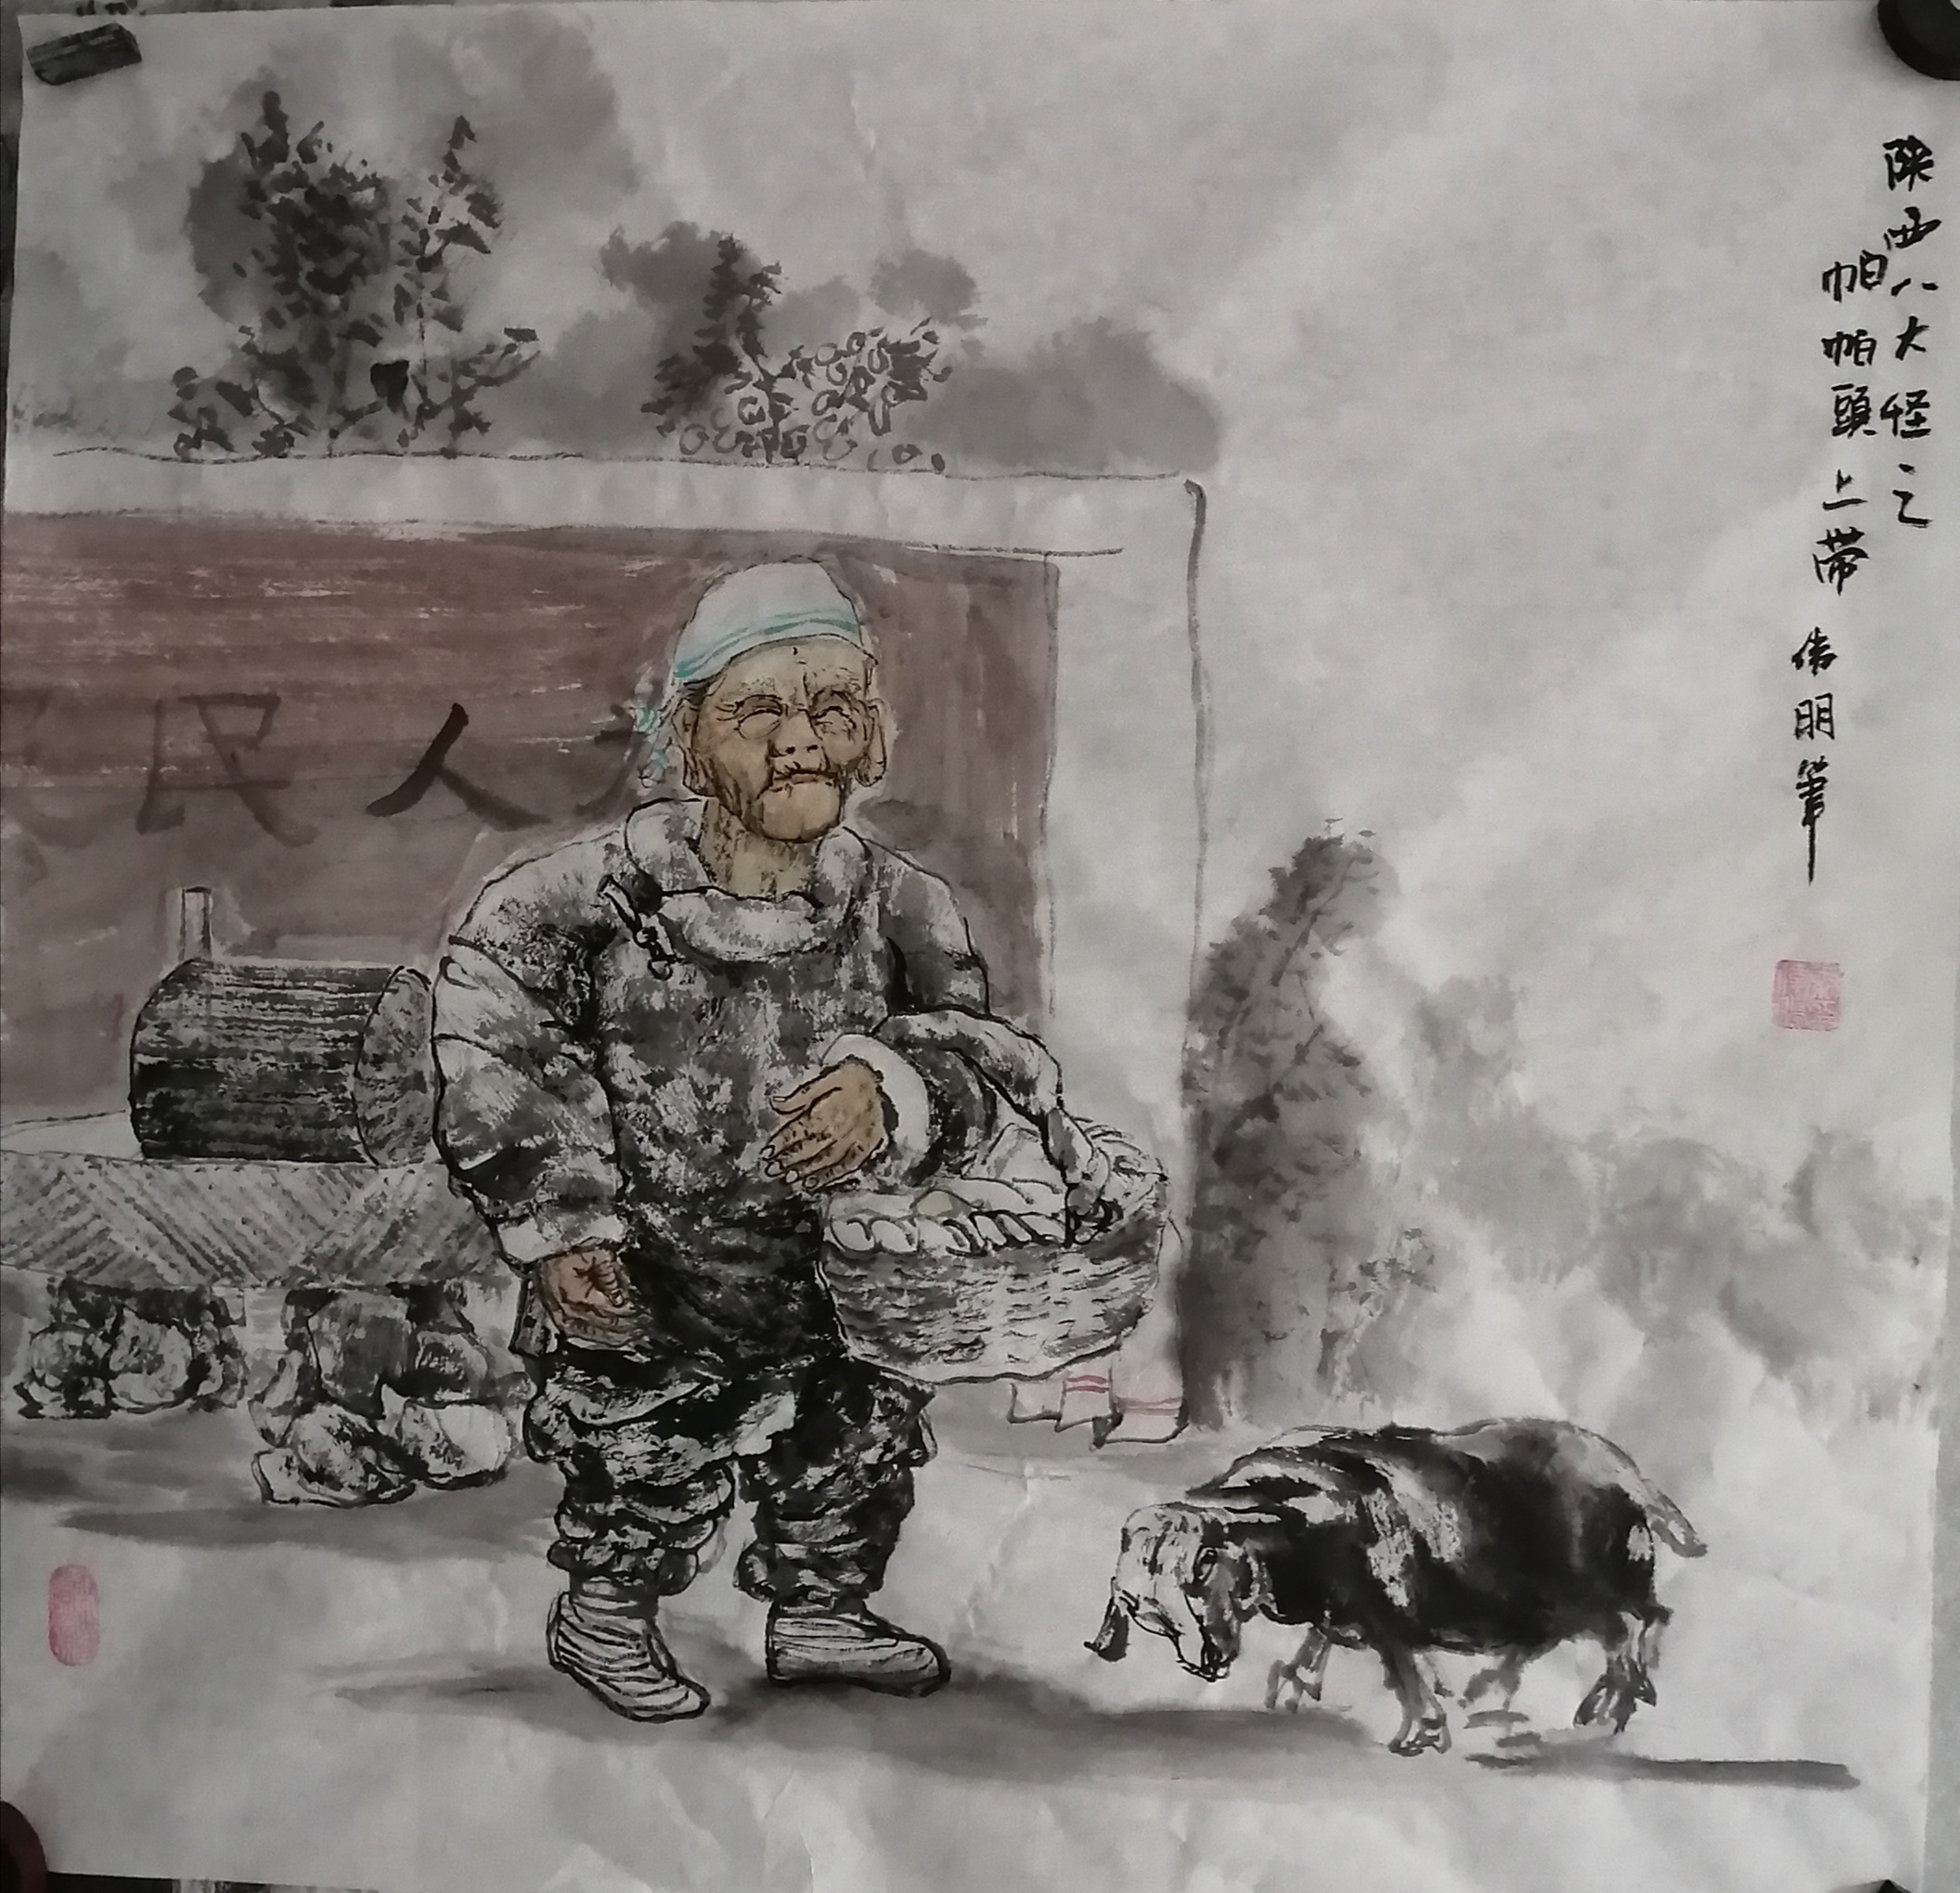 陕西八大怪之
帕帕頭上带
伟明筆
民人